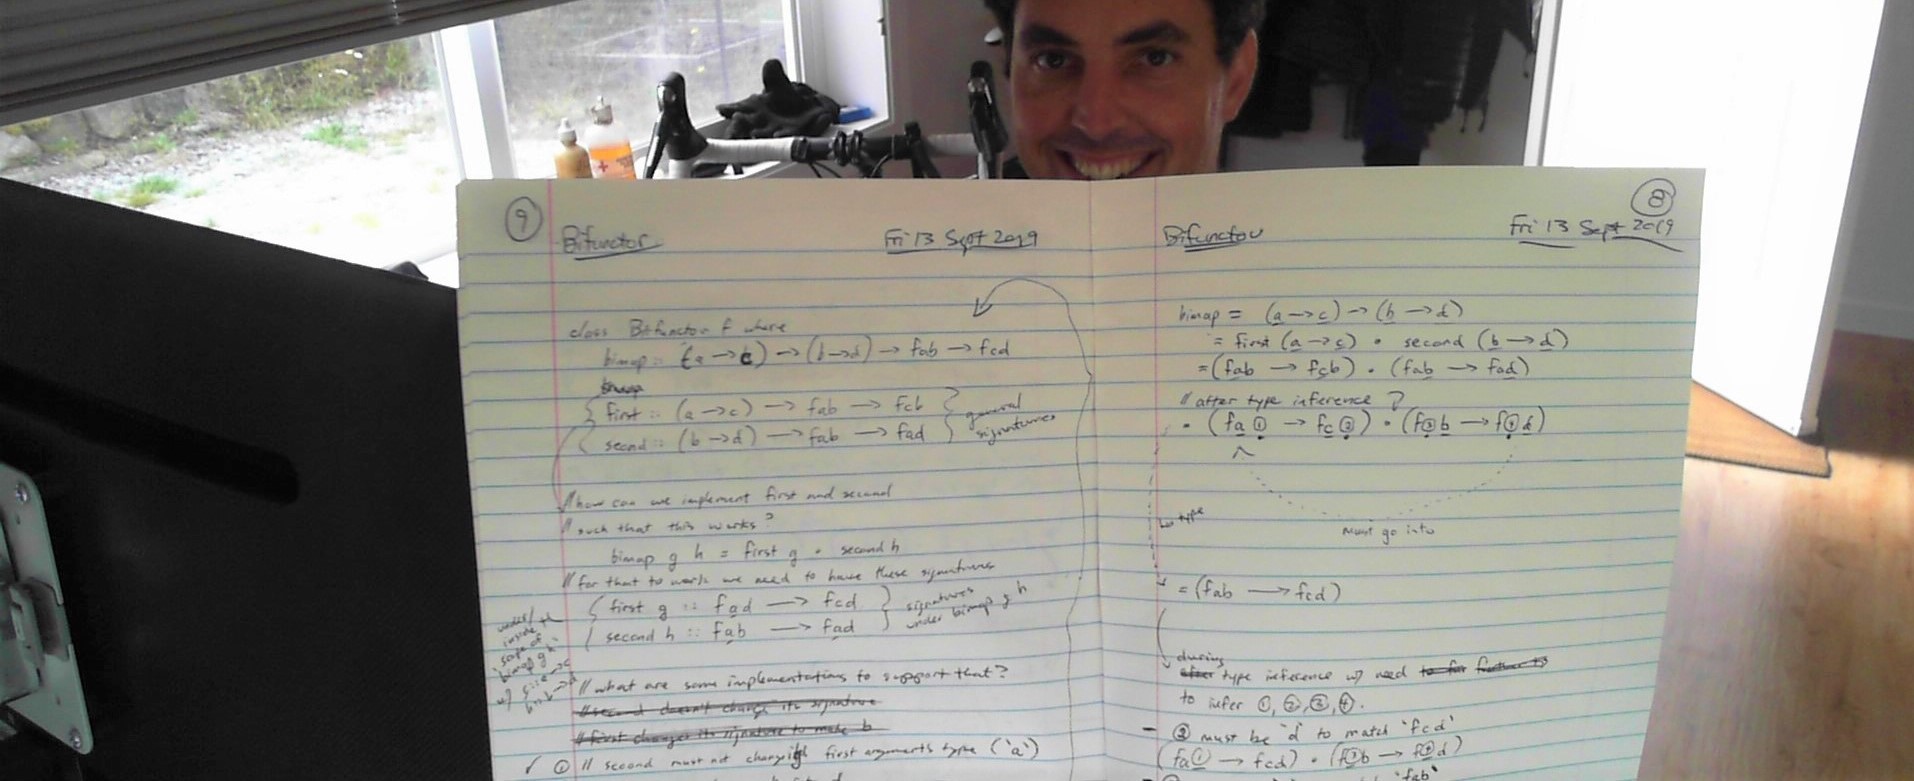 9
Bifunctor Fri 13 Sept 2019
class Bifunctor f where
bimap :: (a → c) → (b → d) → fab → fcd
bimap
first :: (a → c) → fab → fcb
second :: (b → d) → fab → fad
general signatures
// how can we implement first and second
// such that this works?
bimap g h = first g . second h
// for that to work we need to have these signatures
first g :: fad → fcd
second h :: fab → fad
signatures
under bimap g h
under/
inside the
scope of
bimap g h
w/ g::a→c
h::b→d
// what are some implementations to support that?
// second doesn't change its signature
// first changes its signature to make b
✓ ① // second must not change its first arguments type ('a')
8
Bifunctor Fri 13 Sept 2019
bimap = (a → c) → (b → d)
= first (a → c) . second (b → d)
= (fab → fcb) . (fab → fad)
// after type inference ?
. (fa① → fc②) . (f③b → f④d)
must go into
= (fab → fcd)
during
after type inference w/ need to for further to
to infer ①, ②, ③, ④.
- ② must be 'd' to match 'fcd'
(fa① → fcd) . (f③b → f④d)
'fab'